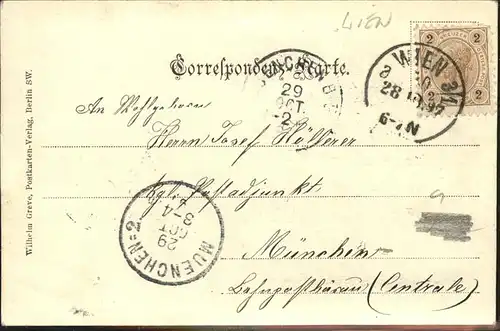 WIEN
Correspondenz-Karte.
2 2
2 2
WIEN
28
6-7N
MÜNCHEN
29
OCT.
2
An Wohlgeboren
Herrn Josef Hollerer
Kgl. Postadjunkt
München
Bahnpostbureau (Centrale)
MUENCHEN 2.
29
OCT
3-4
Wilhelm Greve, Postkarten-Verlag, Berlin SW.